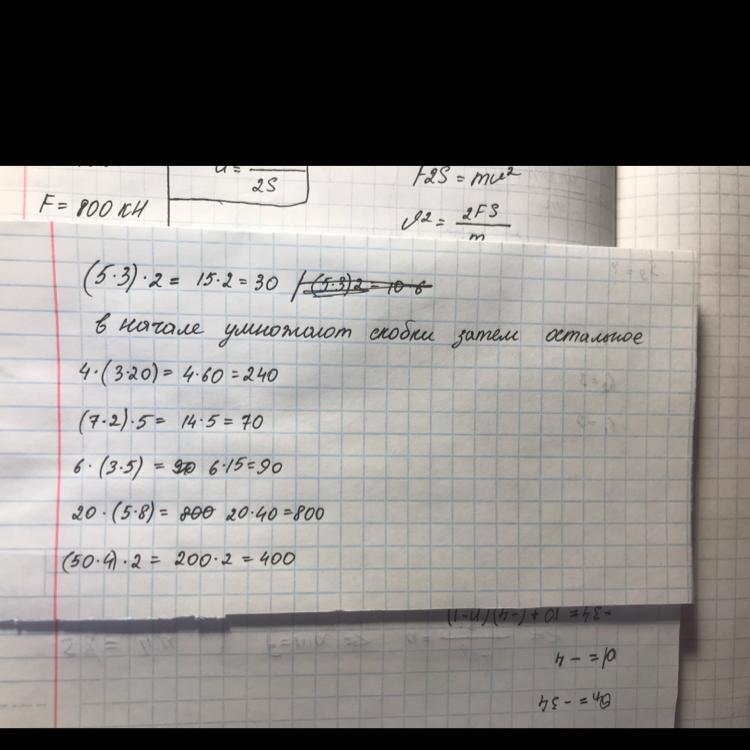 2S
F = 800 кН
F2S = mv²
v² = 2FS
m
(5·3)·2 = 15·2 = 30
в начале умножают скобки затем остальное
4·(3·20) = 4·60 = 240
(7·2)·5 = 14·5 = 70
6·(3·5) = 6·15 = 90
20·(5·8) = 800 20·40 = 800
(50·4)·2 = 200·2 = 400
-34 = 10 + (-4)(n-1)
d = -4
= -34